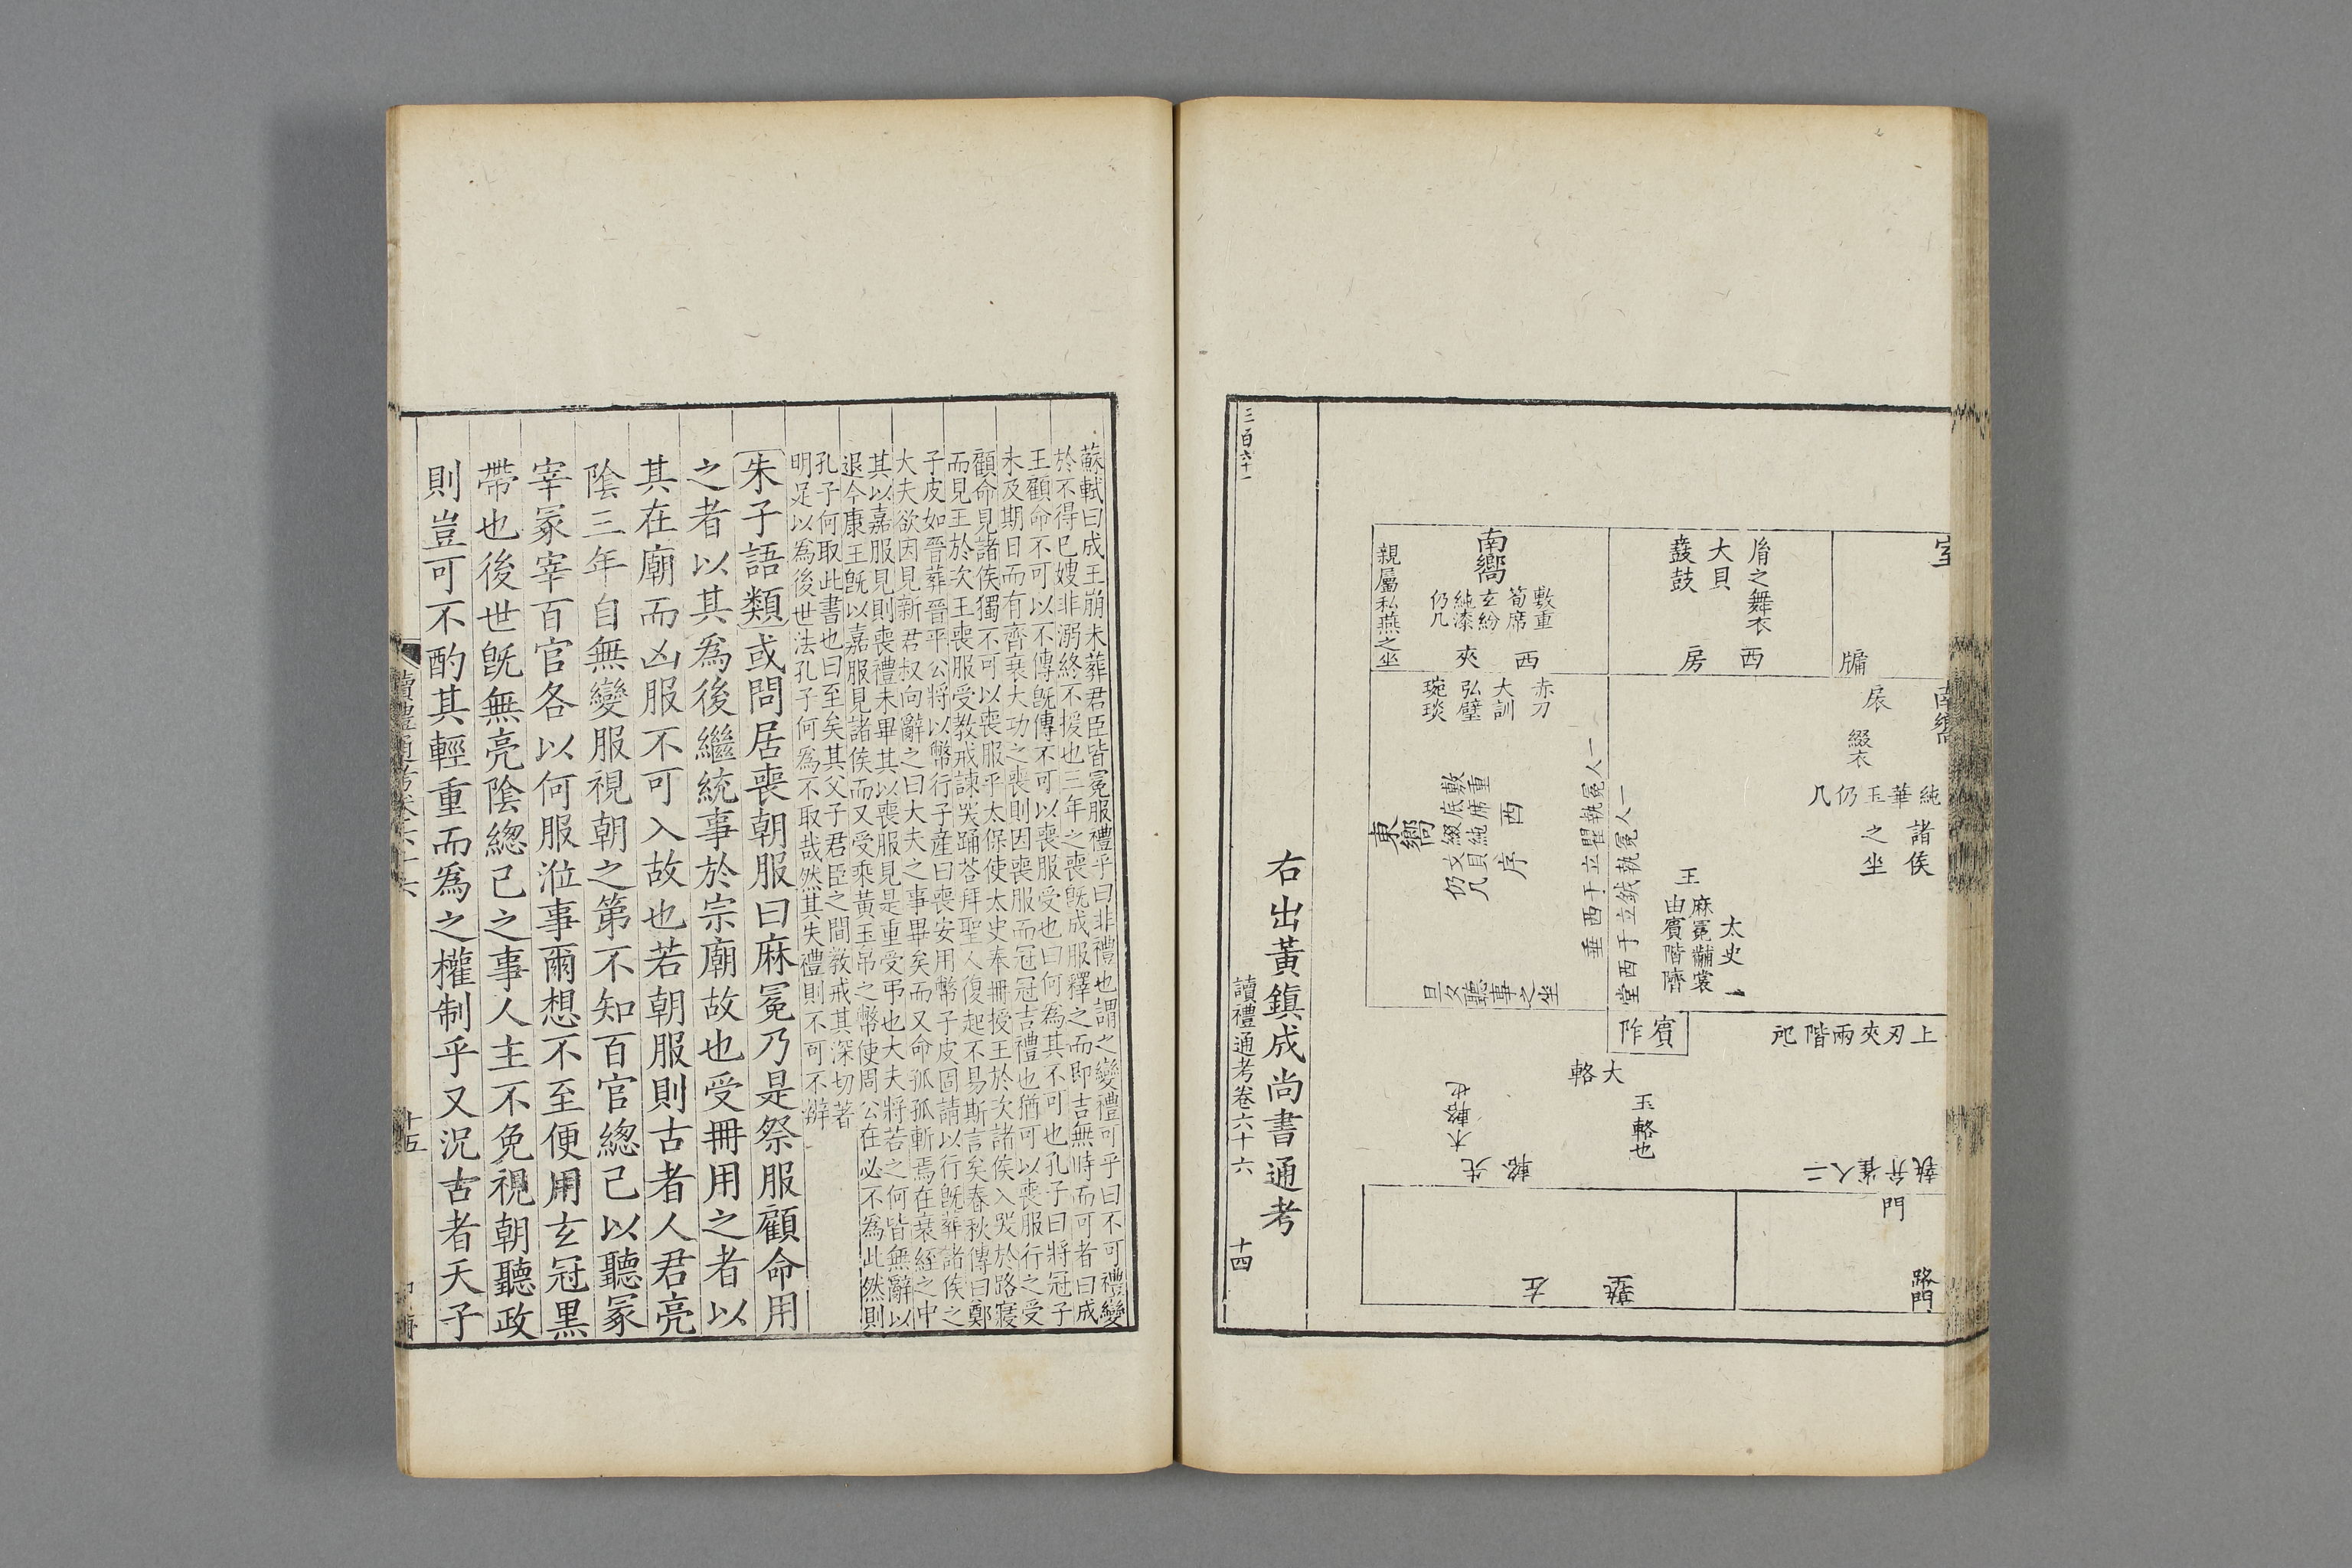 室
胤之舞衣
大貝
鼖鼓
西
房
牖
南嚮
敷重
筍席
玄紛
純漆
仍几
西
夾
親屬私燕之坐
南嚮
扆
綴衣
純華玉仍几
諸侯
之坐
赤刀
大訓
弘璧
琬琰
西
序
重席
敷底
純
綴
文貝
仍几
東嚮
旦夕聽事之坐
一人冕執瞿立于西垂
一人冕執鉞立于西堂
太史
王
麻冕黼裳
由賓階隮
賓阼
上刃夾兩階戺
大輅
玉輅也
先輅
木輅也
二人雀弁執
門
路門
左塾
右出黃鎮成尚書通考
三百六十一
讀禮通考卷六十六
十四
蘇軾曰成王崩未葬君臣皆冕服禮乎曰非禮也謂之變禮可乎曰不可禮變
於不得已嫂非溺終不援也三年之喪旣成服釋之而卽吉無時而可者曰成
王顧命不可以不傳旣傳不可以喪服受也曰何爲其不可也孔子曰將冠子
未及期日而有齊衰大功之喪則因喪服而冠冠吉禮也猶可以喪服行之受
顧命見諸侯獨不可以喪服乎太保使太史奉冊授王於次諸侯入哭於路寢
而見王於次王喪服受教戒諫哭踊荅拜聖人復起不易斯言矣春秋傳曰鄭
子皮如晉葬晉平公將以幣行子產曰喪安用幣子皮固請以行旣葬諸侯之
大夫欲因見新君叔向辭之曰大夫之事畢矣而又命孤孤斬焉在衰絰之中
其以嘉服見則喪禮未畢其以喪服見是重受弔也大夫將若之何皆無辭以
退今康王旣以嘉服見諸侯而又受乘黃玉帛之幣使周公在必不爲此然則
孔子何取此書也曰至矣其父子君臣之間教戒其深切著
明足以爲後世法孔子何爲不取哉然其失禮則不可不辯
朱子語類或問居喪朝服曰麻冕乃是祭服顧命用
之者以其爲後繼統事於宗廟故也受冊用之者以
其在廟而凶服不可入故也若朝服則古者人君亮
陰三年自無變服視朝之第不知百官緫己以聽冢
宰冢宰百官各以何服涖事爾想不至便用玄冠黑
帶也後世旣無亮陰緫己之事人主不免視朝聽政
則豈可不酌其輕重而爲之權制乎又況古者天子
讀禮通考卷六十六
十五